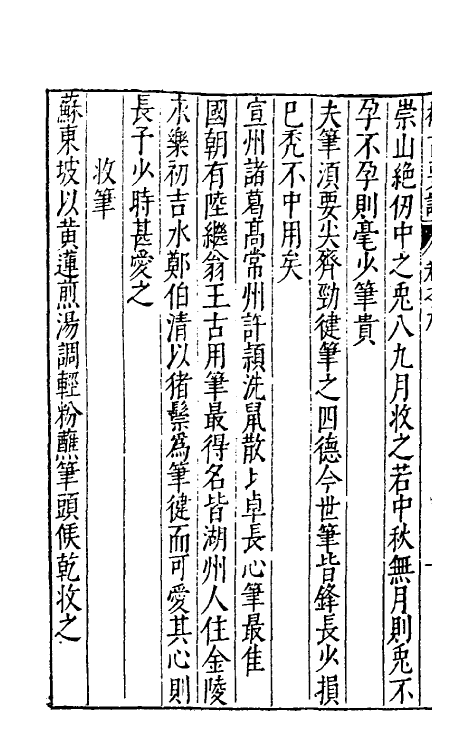 崇山絶仞中之兎八九月收之若中秋無月則兎不
孕不孕則毫少筆貴
夫筆須要尖齊勁健筆之四德今世筆皆鋒長少損
巳秃不中用矣
宣州諸葛高常州許頴洗鼠散卓長心筆最佳
國朝有陸繼翁王古用筆最得名皆湖州人住金陵
永樂初吉水鄭伯清以猪鬃為筆健而可愛其心則
長子少時甚愛之
收筆
蘇東坡以黄蓮煎湯調輕粉蘸筆頭候乾收之